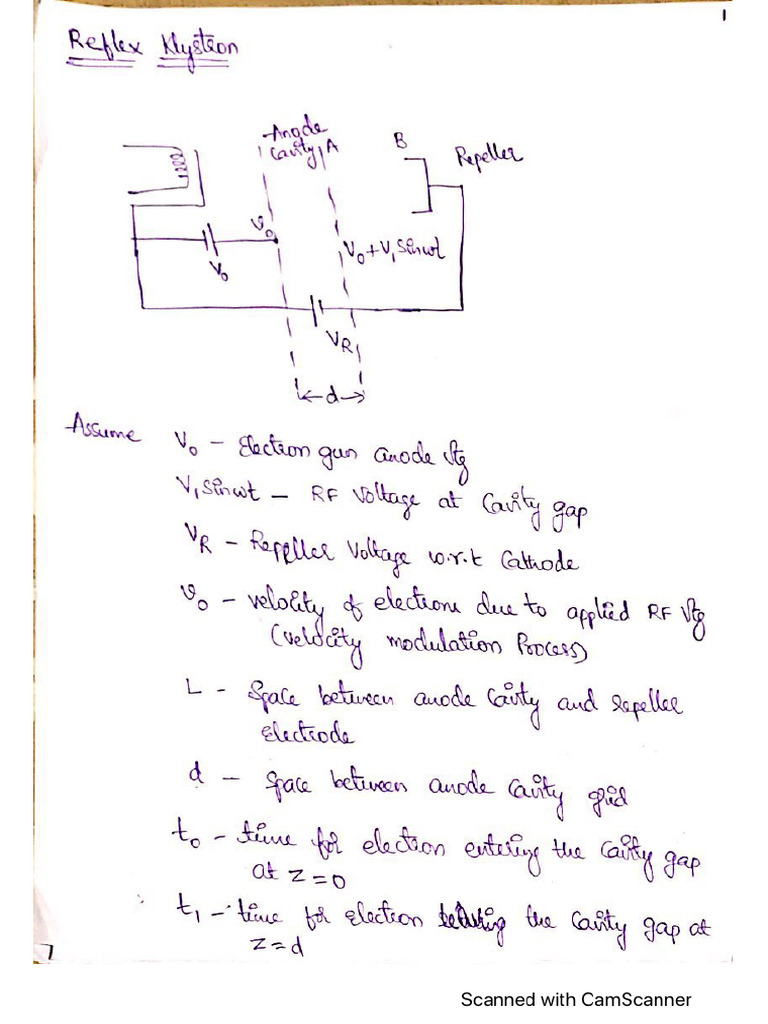 1
Reflex Klystron
Anode
Cavity A
B
Repeller
V₀
V₀
V₀+V₁sinωt
V_R
d
Assume V₀ - Electron gun anode Vtg
V₁sinωt - RF Voltage at Cavity gap
V_R - Repeller Voltage w.r.t Cathode
v₀ - velocity of electrons due to applied RF Vtg
(velocity modulation Process)
L - Space between anode Cavity and repeller
electrode
d - Space between anode Cavity grid
t₀ - time for electron entering the Cavity gap
at z=0
t₁ - time for electron the Cavity gap at
z=d
Scanned with CamScanner